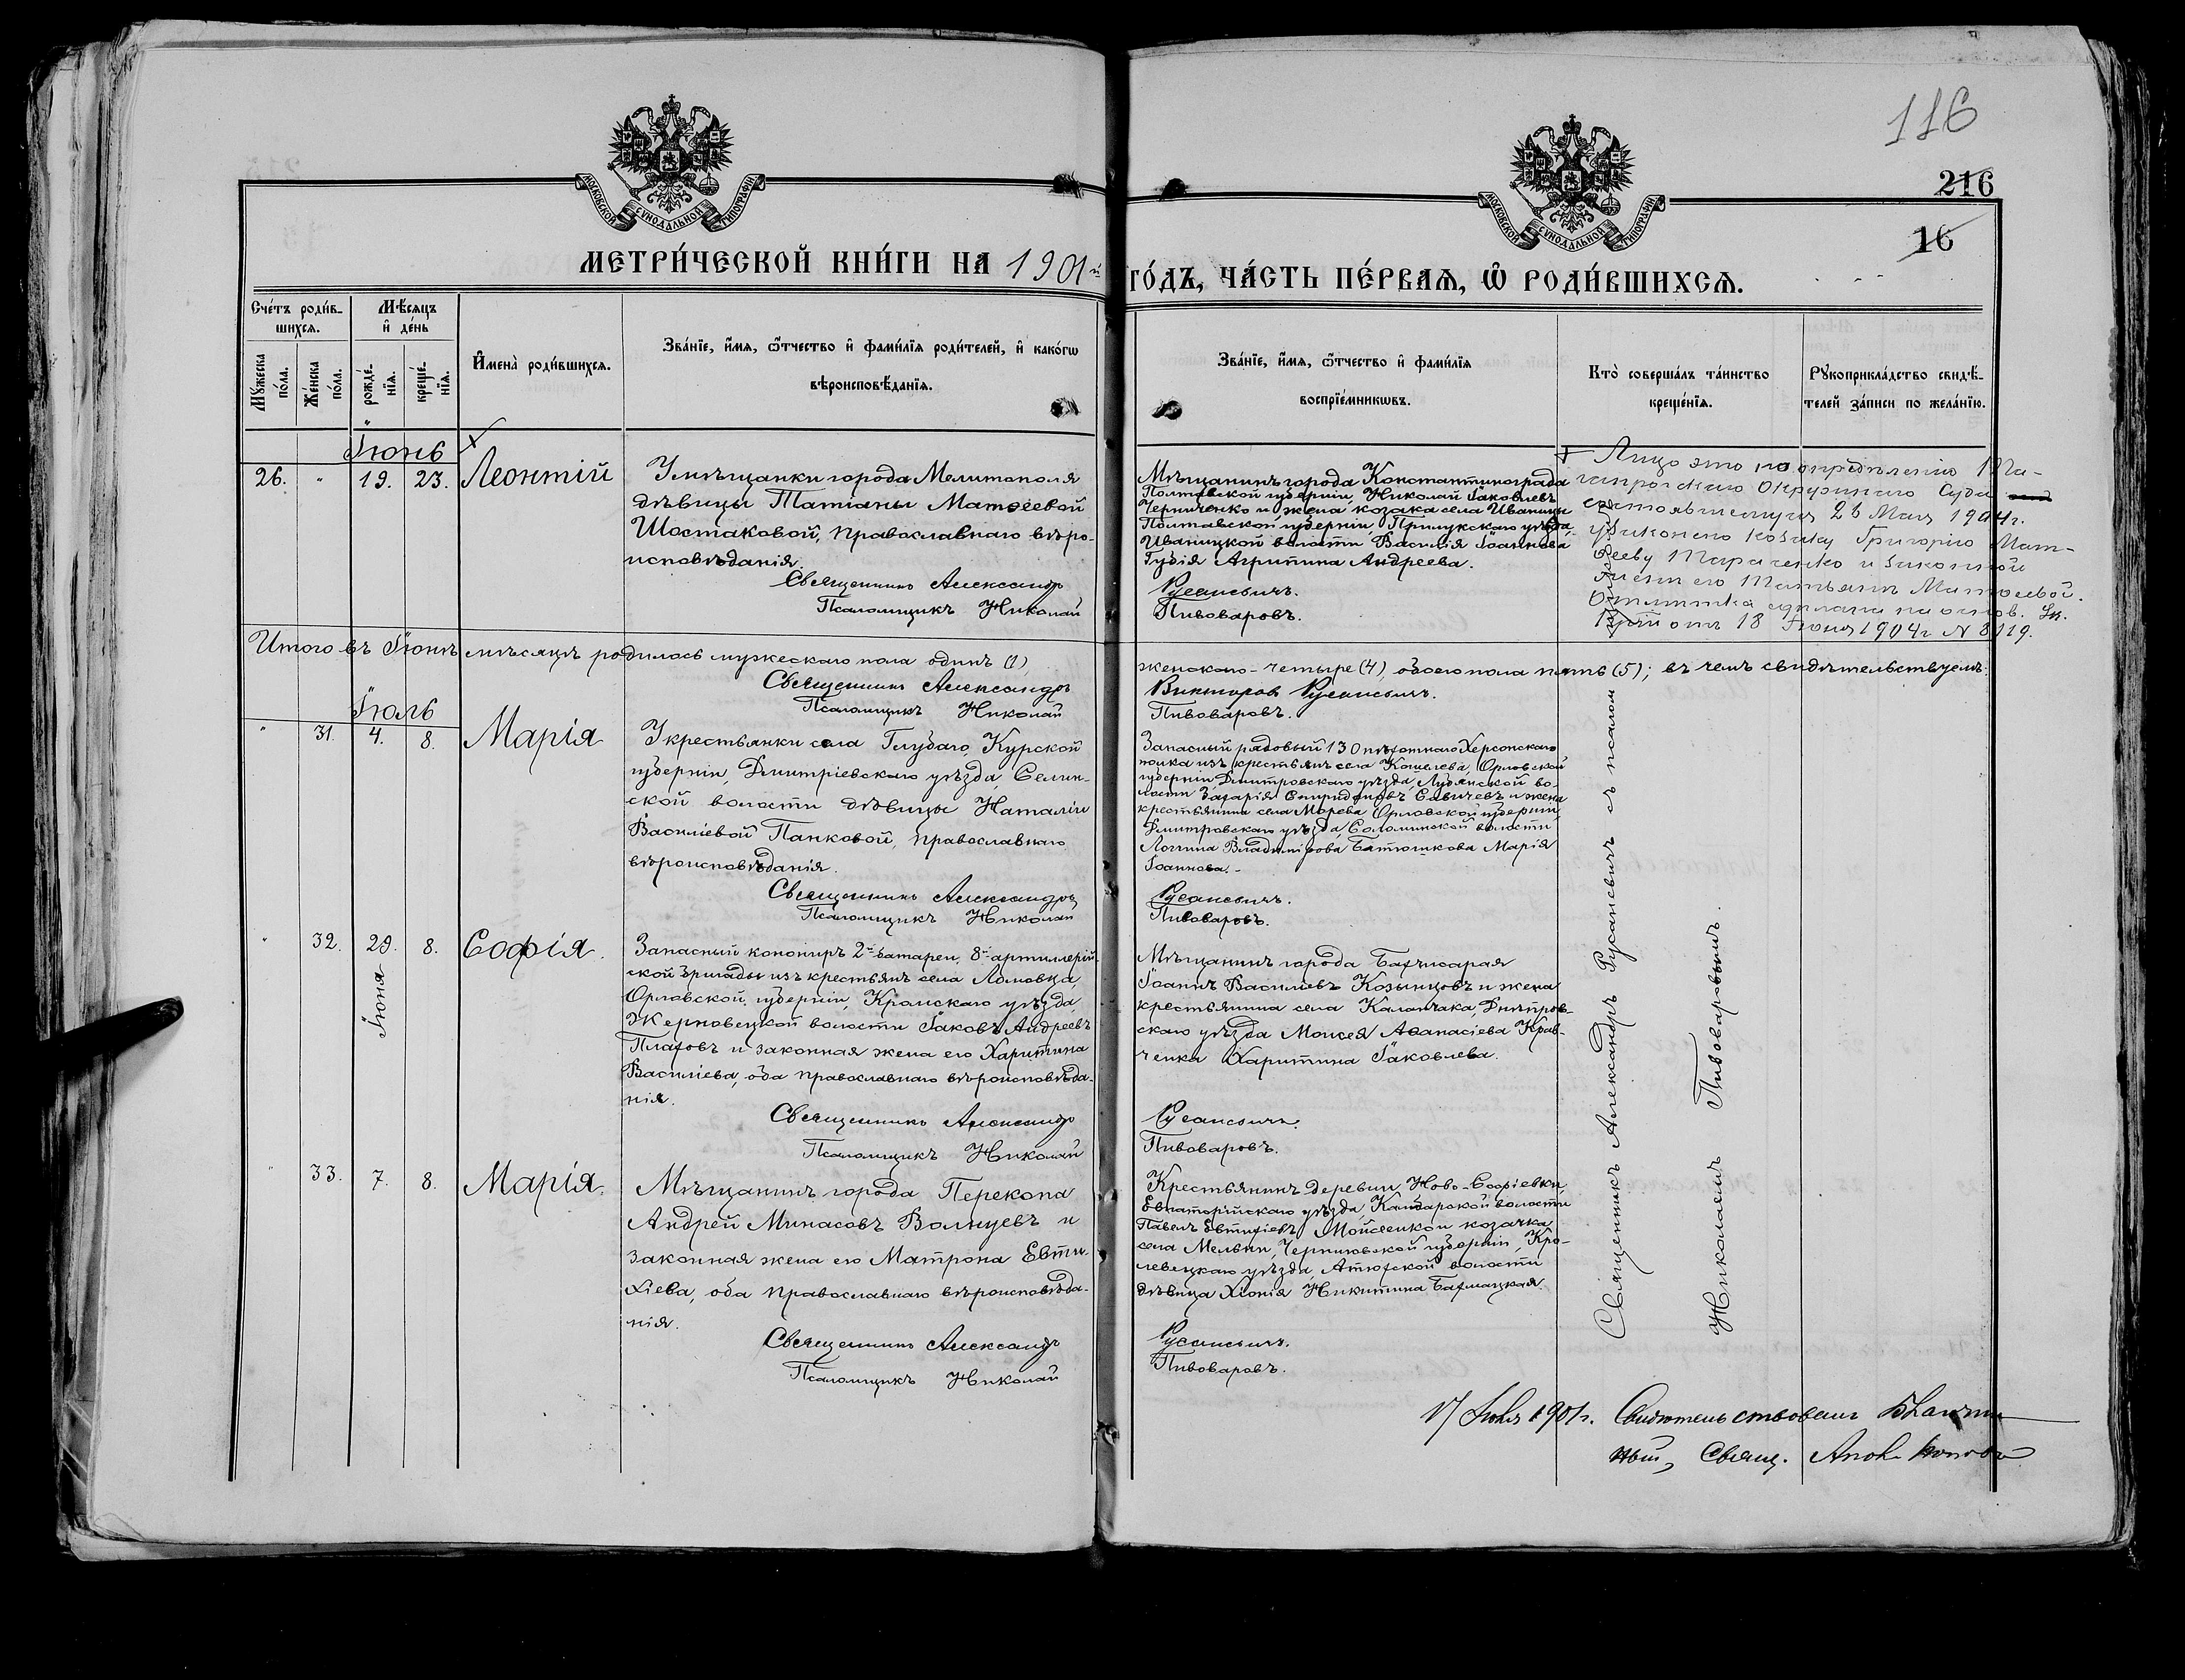 116
216
16
МОСКОВСКОЙ СУНОДАЛЬНОЙ ТИПОГРАФІИ
МОСКОВСКОЙ СУНОДАЛЬНОЙ ТИПОГРАФІИ
МЕТРИ́ЧЕСКОЙ КНИ́ГИ НА 1901й
ГО́ДЪ, ЧА́СТЬ ПЕ́РВАѦ, Ѡ҆ РОДИ́ВШИХСѦ.
Сче́тъ роди́в-
шихсѧ.
Мꙋ́жеска по́ла.
Же́нска по́ла.
Мѣ́сѧцъ
и҆ де́нь
рожде́-
нїѧ.
креще́-
нїѧ.
И҆мена̀ роди́вшихсѧ.
Зва́нїе, и҆́мѧ, ѻ҆́тчество и҆ фами́лїѧ роди́телей, и҆ како́гѡ
вѣроисповѣ́данїѧ.
Зва́нїе, и҆́мѧ, ѻ҆́тчество и҆ фами́лїѧ
воспрїе́мникѡвъ.
Кто̀ соверша́лъ та́инство
креще́нїѧ.
Рꙋкоприкла́дство свидѣ́-
телей за́писи по жела́нїю.
Іюнь
26. " 19. 23. Леонтій
У мѣщанки города Мелитополя
дѣвицы Татіаны Матѳеевой
Шостаковой, православнаго вѣро-
исповѣданія.
Священникъ Александръ
Псаломщикъ Николай
Мѣщанинъ города Константинограда
Полтавской губерніи, Николай Іаковлевъ
Черниченко и жена козака села Иваницы
Полтавской губерніи, Прилукскаго уѣзда,
Иваницкой волости Василія Іоаннова
Гудія Агрипина Андреева.
Русаневичъ.
Пивоваровъ.
Лицо это по опредѣленію Та-
ганрогскаго Окружнаго Суда
состоявшемуся 26 Мая 1904г.
узаконено козаку Григорію Мат-
ѳееву Тараненко и законной
женѣ его Татьянѣ Матѳеевой.
Отмѣтка сдѣлана на основ.
18 Іюня 1904г № 8119.
Итого въ Іюнѣ мѣсяцѣ родилось мужескаго пола одинъ (1)
женскаго - четыре (4), обоего пола пять (5); въ чемъ свидѣтельствуемъ:
Священникъ Александръ
Псаломщикъ Николай
Викторовъ Русаневичъ.
Пивоваровъ.
Іюль
" 31. 4. 8. Марія
У крестьянки села Глубаго, Курской
губерніи, Дмитріевскаго уѣзда, Селин-
ской волости дѣвицы Наталіи
Василіевой Панковой, православнаго
вѣроисповѣданія.
Священникъ Александръ
Псаломщикъ Николай
Запасный рядовый 130 пѣхотнаго Херсонскаго
полка изъ крестьянъ села Кошелева, Орловской
губерніи, Дмитровскаго уѣзда, Лубянской во-
лости Захарія Спиридоновъ Савичевъ и жена
крестьянина села Морева Орловской губерніи,
Дмитровскаго уѣзда, Соломинской волости
Логгина Владимірова Батюшкова Марія
Іоаннова.-
Русаневичъ.
Пивоваровъ.
" 32. 29. Іюня 8. Софія.
Запасный канониръ 2й батареи, 8й артиллерій-
ской бригады изъ крестьянъ села Ломовца,
Орловской губерніи, Кромскаго уѣзда,
Жерновецкой волости Іаковъ Андреевъ
Плаховъ и законная жена его Харитина
Василіева, оба православнаго вѣроисповѣда-
нія.
Священникъ Александръ
Псаломщикъ Николай
Мѣщанинъ города Бахчисарая
Іоаннъ Василіевъ Козынцовъ и жена
крестьянина села Каланчака, Днѣпров-
скаго уѣзда Моисея Аѳанасіева Крав-
ченка Харитина Іаковлева.
Русаневичъ.
Пивоваровъ.
" 33. 7. 8. Марія.
Мѣщанинъ города Перекопа
Андрей Минасовъ Волнцевъ и
законная жена его Матрона Евти-
хіева, оба православнаго вѣроисповѣда-
нія.
Священникъ Александръ
Псаломщикъ Николай
Крестьянинъ деревни Ново-Софіевки,
Евпаторійскаго уѣзда, Камбарской волости
Павелъ Евтихіевъ Мойсеенко и козачка
села Мельни, Черниговской губерніи, Кро-
левецкаго уѣзда, Атюской волости
дѣвица Хіонія Никитина Бахмацкая.
Русаневичъ.
Пивоваровъ.
Священникъ Александръ Русаневичъ съ псалом
Николаемъ Пивоваровымъ.
17 Іюля 1901г. Свидѣтельствовалъ Благочин-
ный, Свящ.